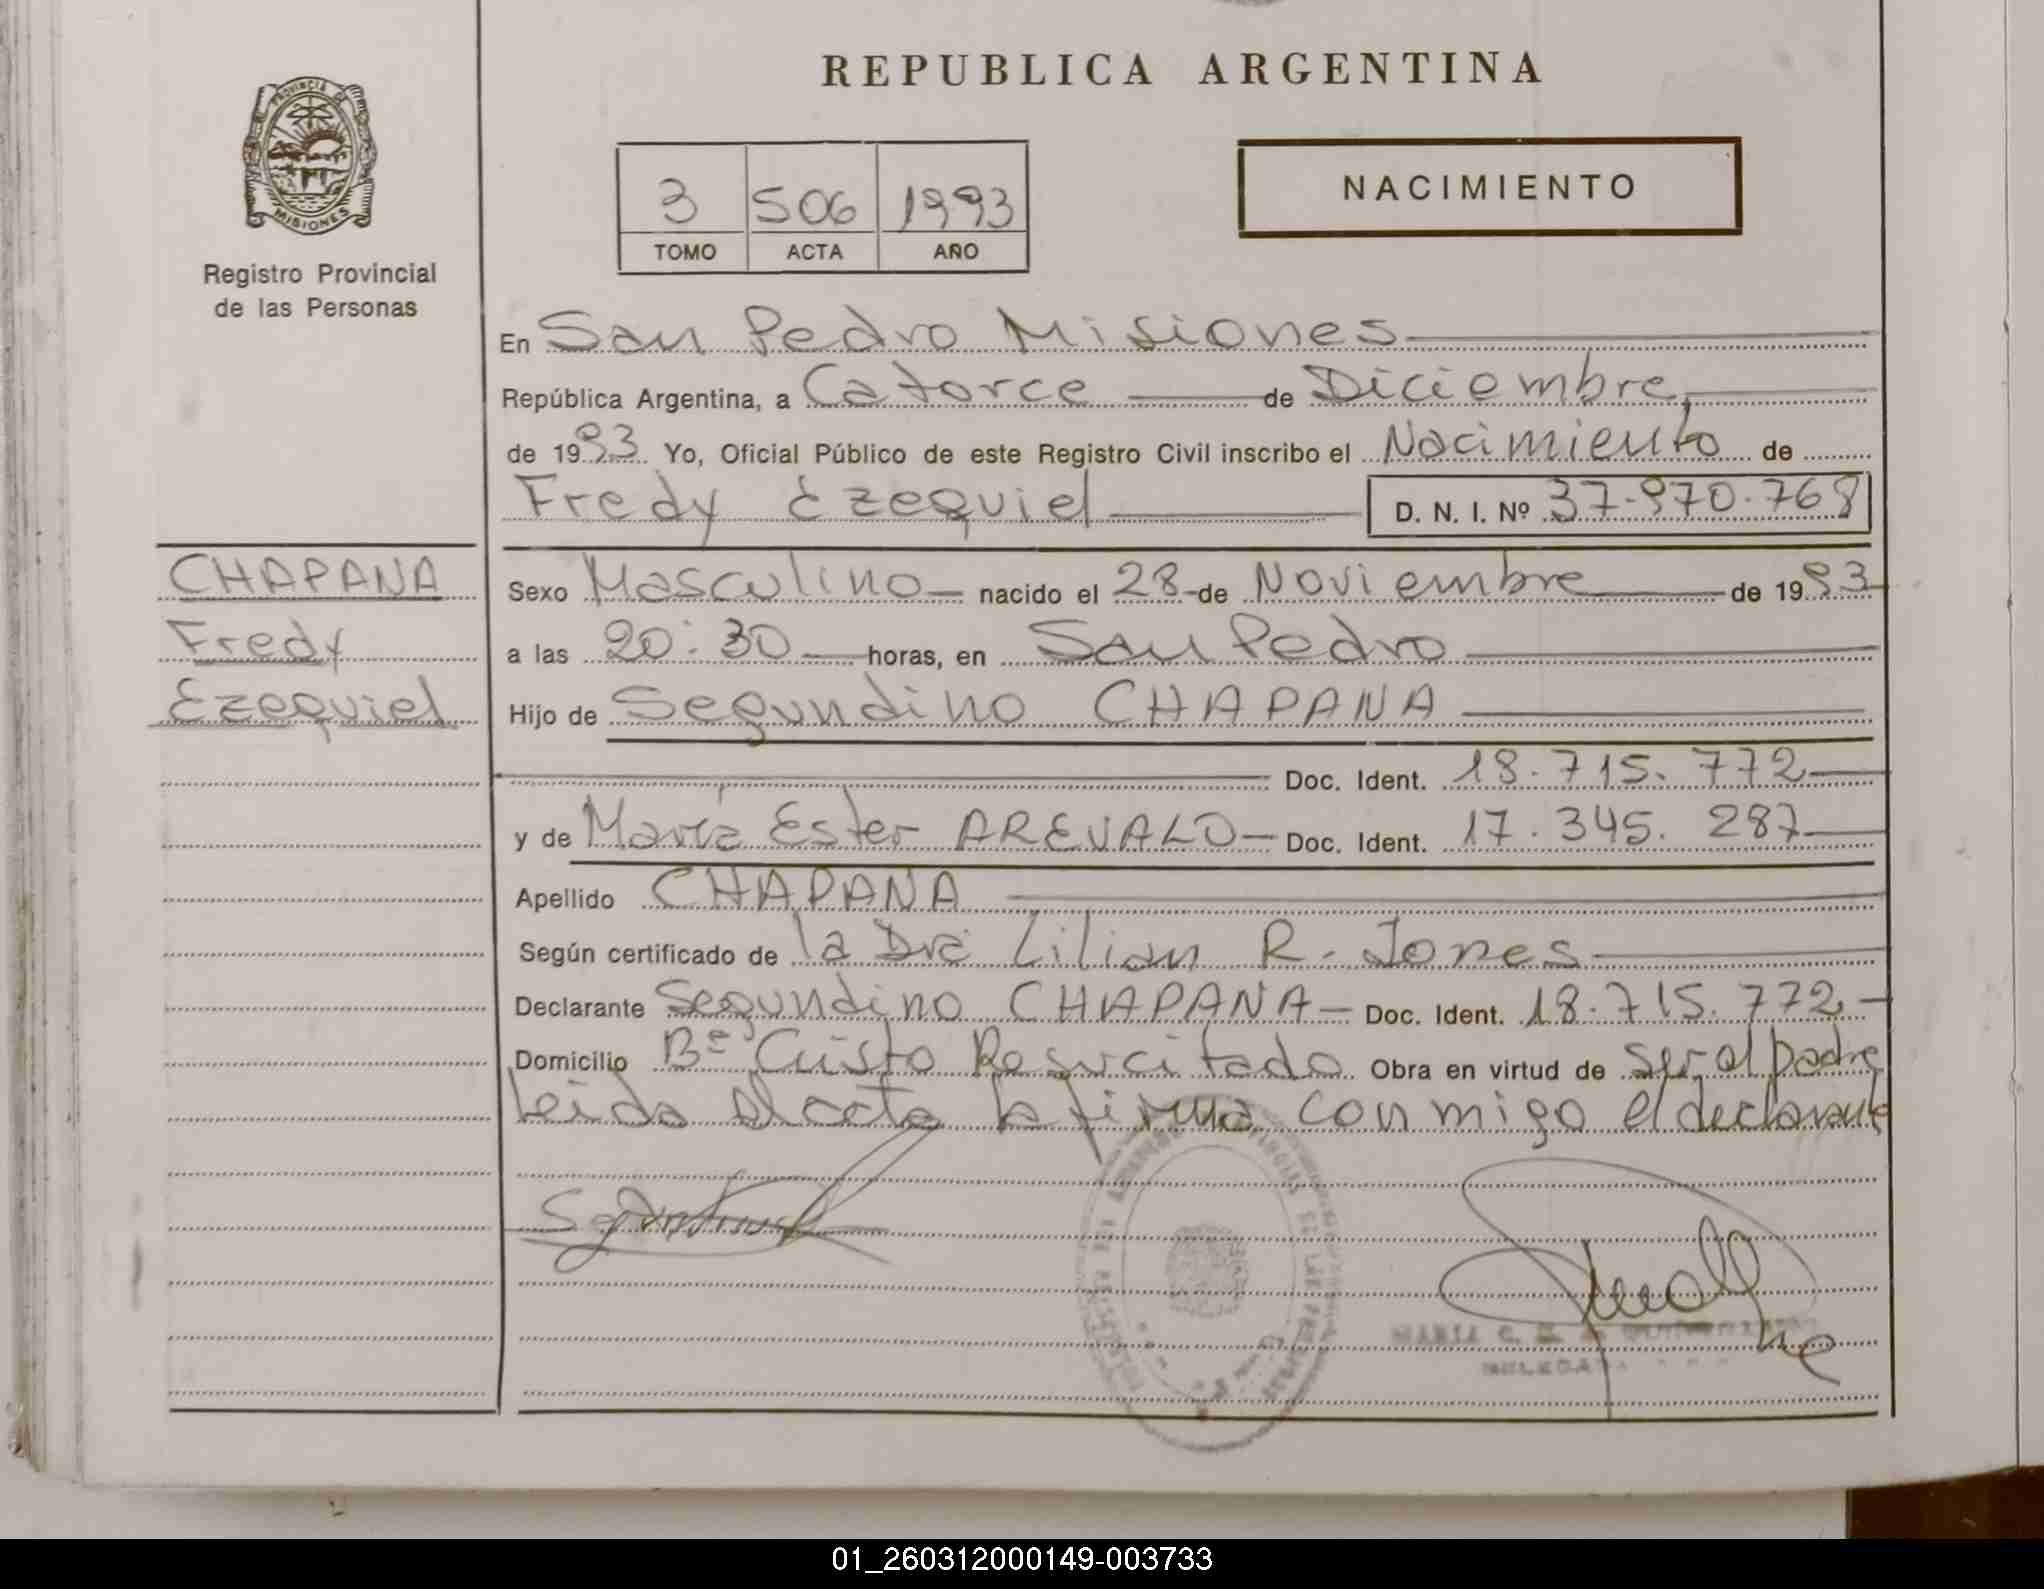 REPUBLICA ARGENTINA
PROVINCIA DE
MISIONES
Registro Provincial
de las Personas
3 506 1993
TOMO ACTA AÑO
NACIMIENTO
En San Pedro Misiones
República Argentina, a Catorce de Diciembre,
de 1993 Yo, Oficial Público de este Registro Civil inscribo el Nacimiento de
Fredy Ezequiel D. N. I. Nº 37.970.768
CHAPANA
Fredy
Ezequiel
Sexo Masculino nacido el 28 de Noviembre de 1993
a las 20:30 horas, en San Pedro
Hijo de Segundino CHAPANA
Doc. Ident. 18.715.772
y de María Ester AREVALO Doc. Ident. 17.345.287
Apellido CHAPANA
Según certificado de la Dra Lilian R. Jones
Declarante Segundino CHAPANA Doc. Ident. 18.715.772
Domicilio Bº Cristo Resucitado Obra en virtud de ser el padre
Leida el acta la firma conmigo el declarante
MARIA C.
01_260312000149-003733